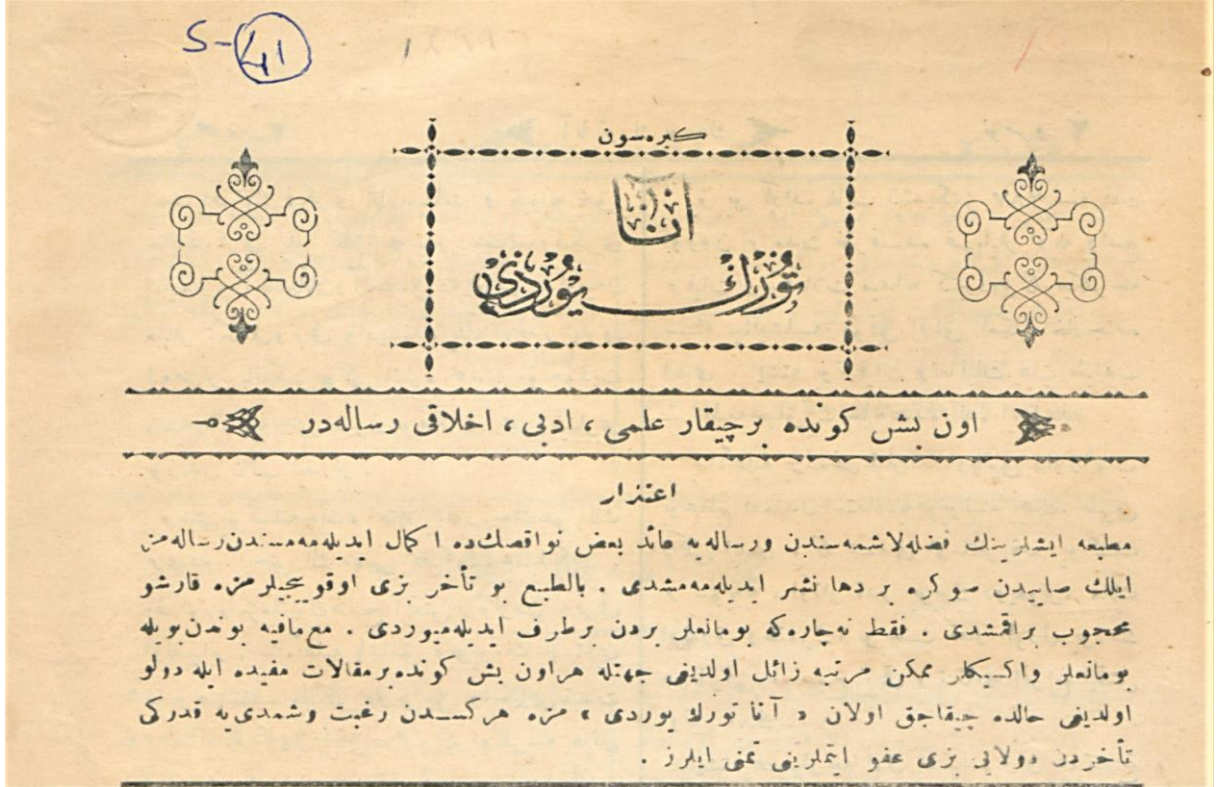 S-41
كبره‌سون
آنا
تورك يوردی
اون بش كونده برچیقار علمی ، ادبی ، اخلاقی رساله‌در
اعتذار
مطبعه ایشلرینك فضله‌لاشمه‌سندن ورساله‌یه عائد بعض نواقصك‌ده اكمال ایدیله‌مه‌مسندن رساله‌مز
ایلك صاییدن صوكره بر دها نشر ایدیله‌مه‌مشدی . بالطبع بو تأخر بزی اوقویجیلرمزه قارشو
محجوب براقمشدی . فقط نه‌چاره‌كه بومانعلر بردن برطرف ایدیله‌میوردی . مع‌مافیه بوندن‌بویله
بومانعلر واكسیكلر ممكن مرتبه زائل اولدیغی جهتله هراون بش كونده‌بر مقالات مفیده ایله دولو
اولدیغی حالده چیقاجق اولان « آنا تورك یوردی » مزه هركسدن رغبت وشمدی‌یه قدركی
تأخردن دولایی بزی عفو ایتملرینی تمنی ایلرز .